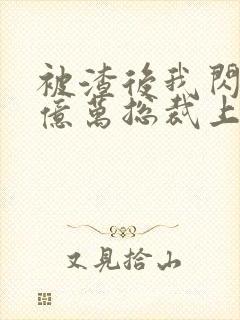 被渣後我閃
億萬總裁上
又見拾山